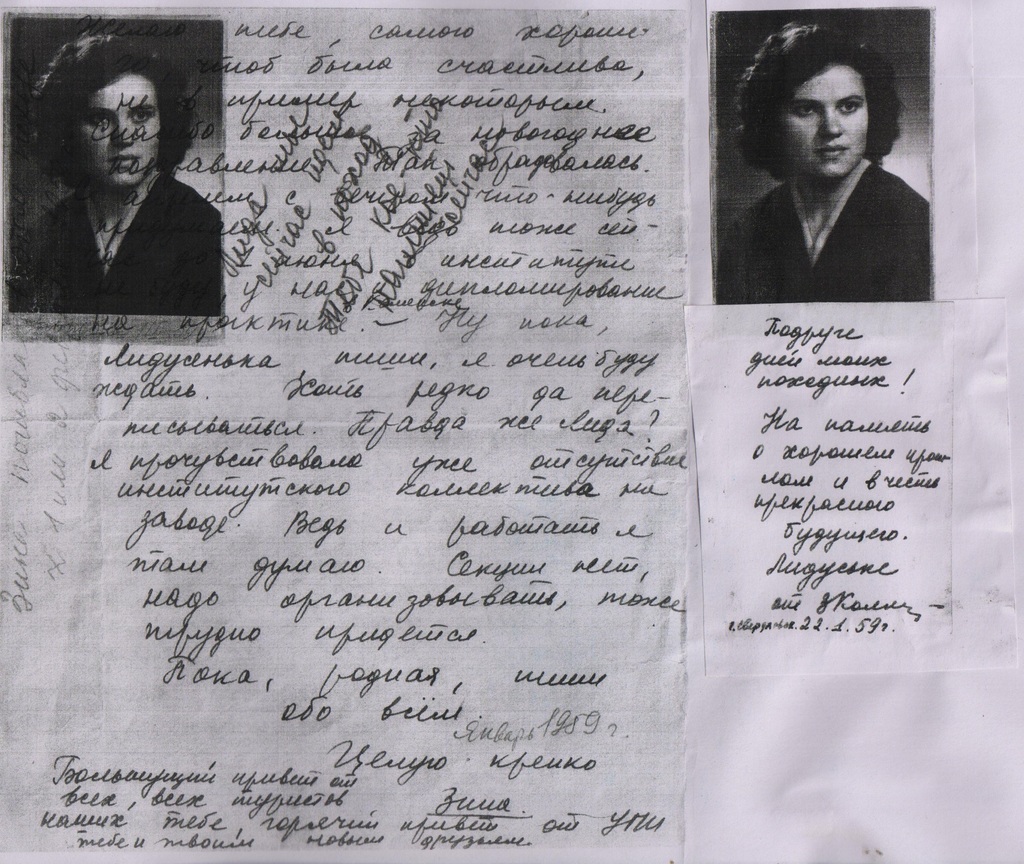 Желаю тебе, самого хороше-
го, чтоб была счастлива,
не в пример некоторым.
Спасибо большое за новогоднее
поздравление. Так обрадовалась.
с вечером что-нибудь
придумаем. Я ведь тоже сей-
час до июня в институте
не буду, у нас дипломирование
на практике. – Ну пока,
Лидусенька, пиши, я очень буду
ждать. Хоть редко да пере-
писываться. Правда же Лида?
Я прочувствовала уже отсутствие
институтского коллектива на
заводе. Ведь и работать я
там думаю. Секции нет,
надо организовывать, тоже
трудно придется.
Пока, родная, пиши
обо всём.
Январь 1959 г.
Целую крепко
Зина.
Большущий привет от
всех, всех туристов
наших тебе, горячий привет от УПИ
тебе и твоим новым друзьям.
Лида
сейчас идем
в поход
Тебе
напишем
сейчас
Зина погибла
1 или 2
Подруге
дней моих
походных!
На память
о хорошем прош-
лом и в честь
прекрасного
будущего.
Лидуське
от ЗКолм
г. Свердловск. 22.1.59г.